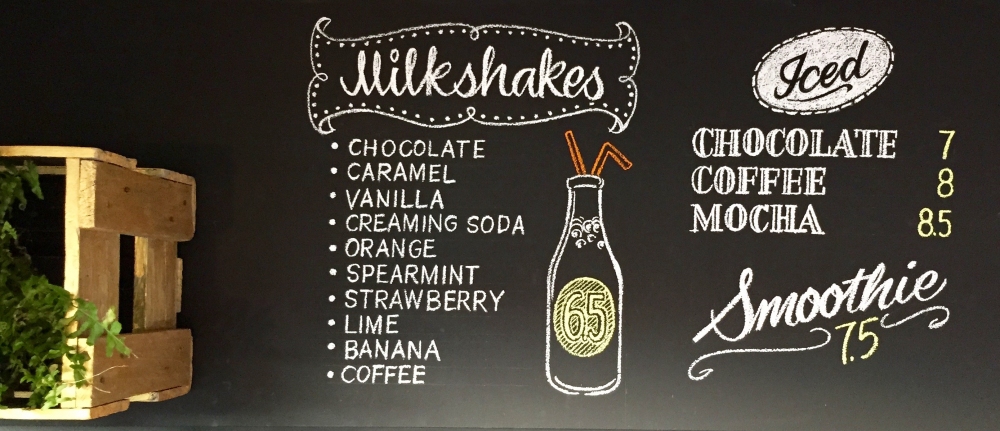 Milkshakes
• CHOCOLATE
• CARAMEL
• VANILLA
• CREAMING SODA
• ORANGE
• SPEARMINT
• STRAWBERRY
• LIME
• BANANA
• COFFEE
6.5
Iced
CHOCOLATE 7
COFFEE 8
MOCHA 8.5
Smoothie
7.5